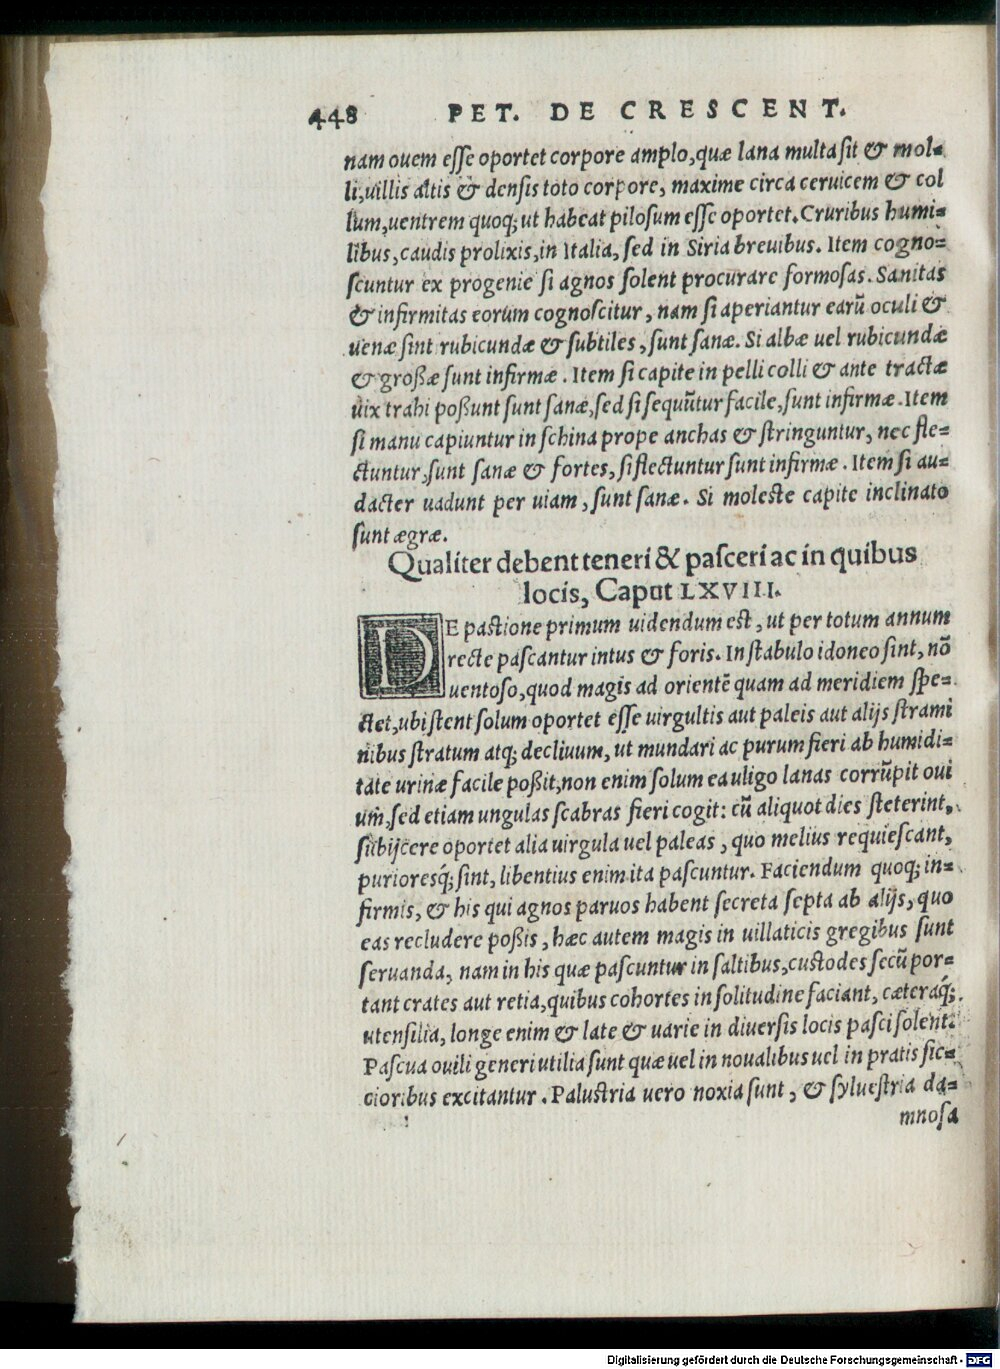 448 PET. DE CRESCENT.
nam ouem eſſe oportet corpore amplo, quæ lana multa ſit & mol=
li, uillis altis & denſis toto corpore, maxime circa ceruicem & col
lum, uentrem quoq; ut habeat piloſum eſſe oportet. Cruribus humi=
libus, caudis prolixis, in Italia, ſed in Siria breuibus. Item cogno=
ſcuntur ex progenie ſi agnos ſolent procurare formoſas. Sanitas
& infirmitas eorum cognoſcitur, nam ſi aperiantur earũ oculi &
uenæ ſint rubicundæ & ſubtiles, ſunt ſanæ. Si albæ uel rubicundæ
& großæ ſunt infirmæ. Item ſi capite in pelli colli & ante tractæ
uix trahi poßunt ſunt ſanæ, ſed ſi ſequũtur facile, ſunt infirmæ. Item
ſi manu capiuntur in ſchina prope anchas & ſtringuntur, nec fle=
ctuntur, ſunt ſanæ & fortes, ſi flectuntur ſunt infirmæ. Item ſi au=
dacter uadunt per uiam, ſunt ſanæ. Si moleſte capite inclinato
ſunt ægræ.
Qualiter debent teneri & paſceri ac in quibus
locis, Caput LXVIII.
DE paſtione primum uidendum eſt, ut per totum annum
recte paſcantur intus & foris. In ſtabulo idoneo ſint, nõ
uentoſo, quod magis ad orientẽ quam ad meridiem ſpe=
ctet, ubi ſtent ſolum oportet eſſe uirgultis aut paleis aut alijs ſtrami
nibus ſtratum atq; decliuum, ut mundari ac purum fieri ab humidi=
tate urinæ facile poßit, non enim ſolum ea uligo lanas corrũpit oui
um, ſed etiam ungulas ſcabras fieri cogit: cũ aliquot dies ſteterint,
ſubijcere oportet alia uirgula uel paleas, quo melius requieſcant,
purioresq́; ſint, libentius enim ita paſcuntur. Faciendum quoq; in=
firmis, & his qui agnos paruos habent ſecreta ſepta ab alijs, quo
eas recludere poßis, hæc autem magis in uillaticis gregibus ſunt
ſeruanda, nam in his quæ paſcuntur in ſaltibus, cuſtodes ſecũ por=
tant crates aut retia, quibus cohortes in ſolitudine faciant, cæteraq́;
utenſilia, longe enim & late & uarie in diuerſis locis paſci ſolent.
Paſcua ouili generi utilia ſunt quæ uel in noualibus uel in pratis ſic=
cioribus excitantur. Paluſtria uero noxia ſunt, & ſylueſtria da=
mnoſa
Digitalisierung gefördert durch die Deutsche Forschungsgemeinschaft - DFG